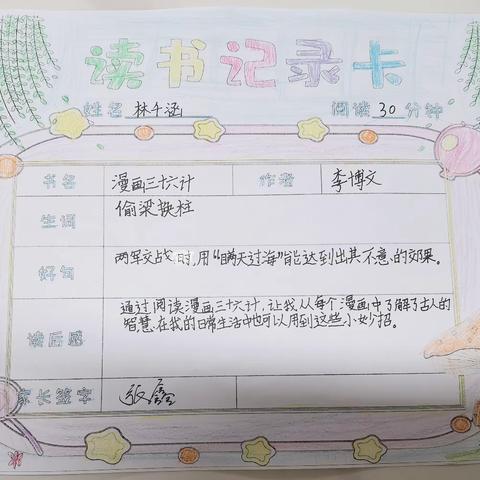 读书记录卡
姓名 林千涵 阅读 30 分钟
书名 漫画三十六计 作者 李博文
生词 偷梁换柱
好句 两军交战时,用“瞒天过海”能达到出其不意的效果。
读后感 通过阅读漫画三十六计,让我从每个漫画中了解了古人的
智慧,在我的日常生活中也可以用到这些小妙招。
家长签字 张鑫